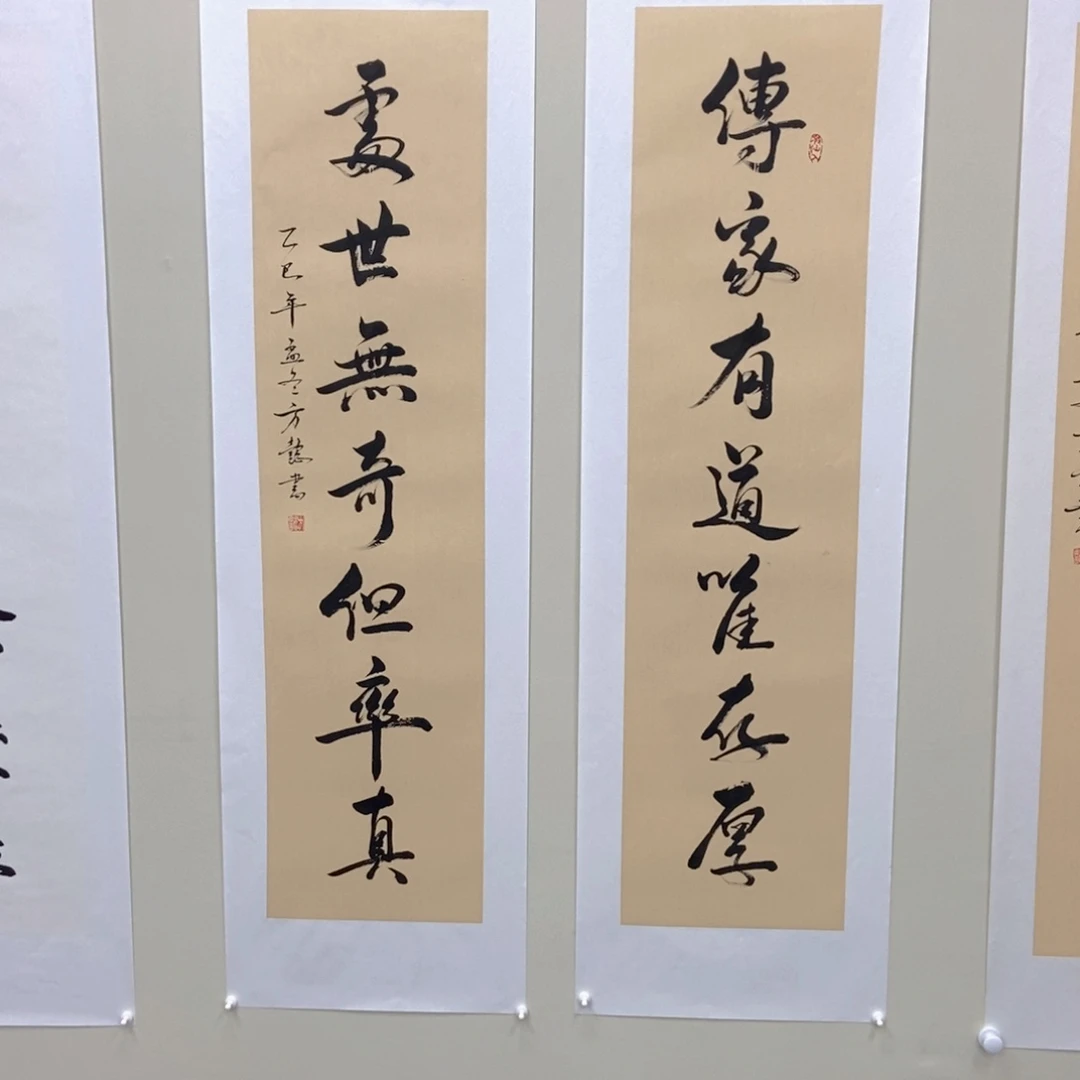 傳家有道唯存厚
處世無奇但率真
乙巳年孟冬方懿書